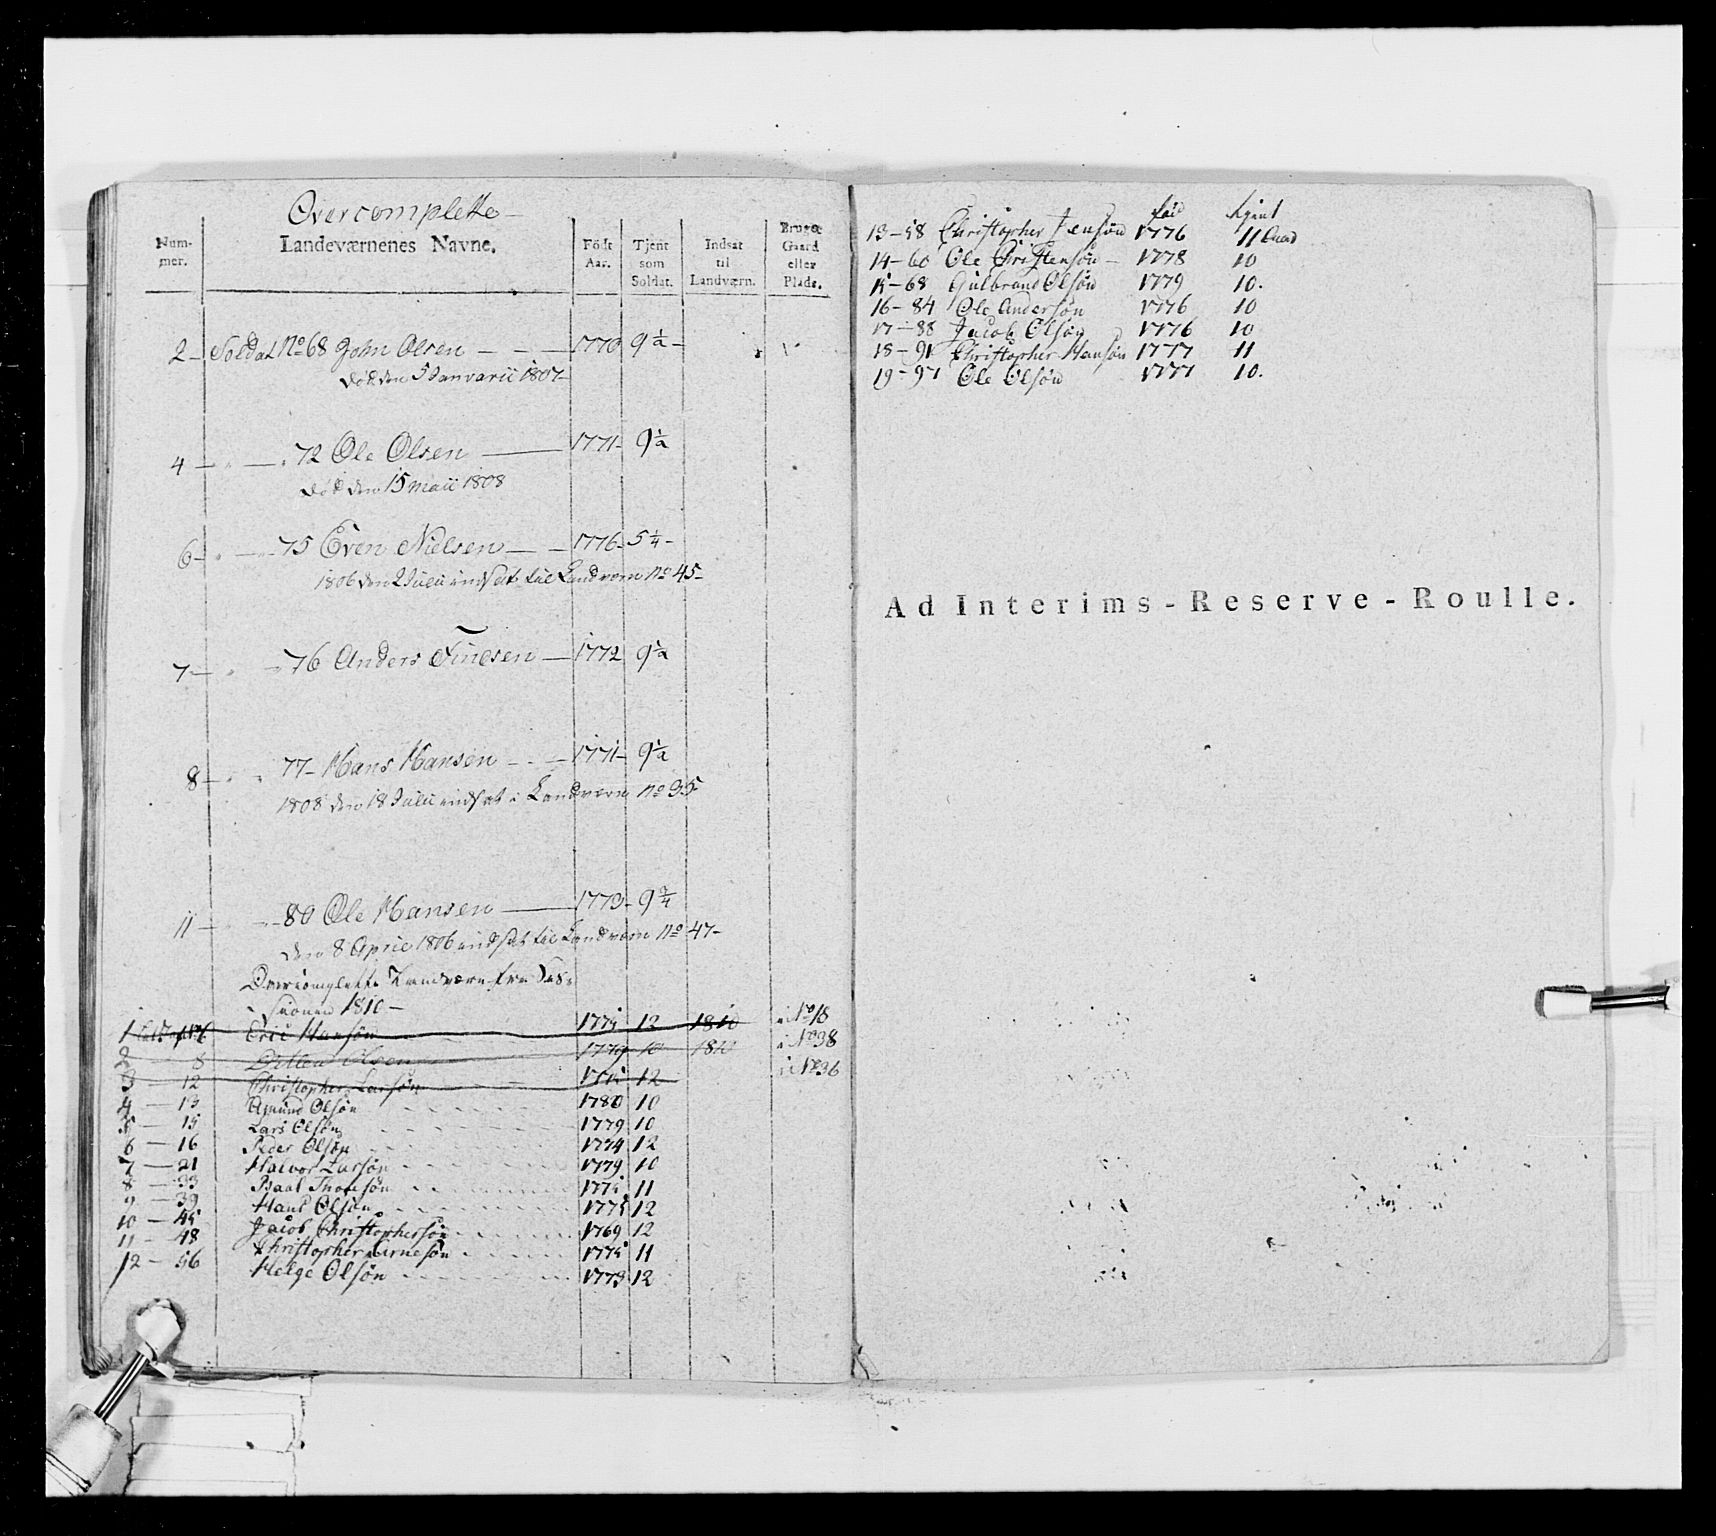 Overcomplette
Num-mer. Landeværnenes Navne. Födt Aar. Tjent som Soldat. Indsat til Landværn. Bruger Gaard eller Plads.
2 - Soldat No 68 John Olsen - - - 1770 9 1/2 -
Död den 5 Januarii 1807 -
4 - " - " 72 Ole Olsen - 1771 - 9 1/2
Död den 15 Maii 1808
6 - " - " 75 Even Nielsen - - 1776 - 5 1/4 -
1806 den 2 Julii indsat til Landværn No 45 -
7 - " " 76 Anders - 1772 9 1/2
8 - " " 77 - Hans Hansen - - - 1771 - 9 1/2
1808 den 18 Julii indsat i Landværn No 35
11 - " - 80 Ole Hansen - 1773 - 9 3/4
den 8 April 1806 indsat til Landværn No 47 -
Overcomplette Landværn fra Ses-
sionen 1810 -
1 Eric Hansøn 1775 12 1810 i No 18
2 8 Olsen 1779 10 1810 i No 38
3 12 Christopher Larsøn 12 i No 36
4 - 13 Amund Olsøn 1780 10
5 - 15 Lars Olsøn 1779 10
6 - 16 Peder Olsøn 1774 12
7 - 21 Halvor Larsøn 1779 10
8 - 33 Paal Thomsøn 1775 11
9 - 39 Hans Olsøn 1775 12
10 - 45 Jacob Christophersøn 1769 12
11 - 48 Christopher Arnesøn 1775 11
12 - 56 Helge Olsøn 1773 12
fød tjent
13 - 58 Christopher Jensøn 1776 11 Aar
14 - 60 Ole Christensøn - 1778 10
15 - 68 Gulbrand Olsøn 1779 10.
16 - 84 Ole Andersøn 1776 10
17 - 88 Jacob Olsøn 1776 10
18 - 91 Christopher Hansøn 1777 11
19 - 97 Ole Olsøn 1777 10.
Ad Interims-Reserve-Roulle.